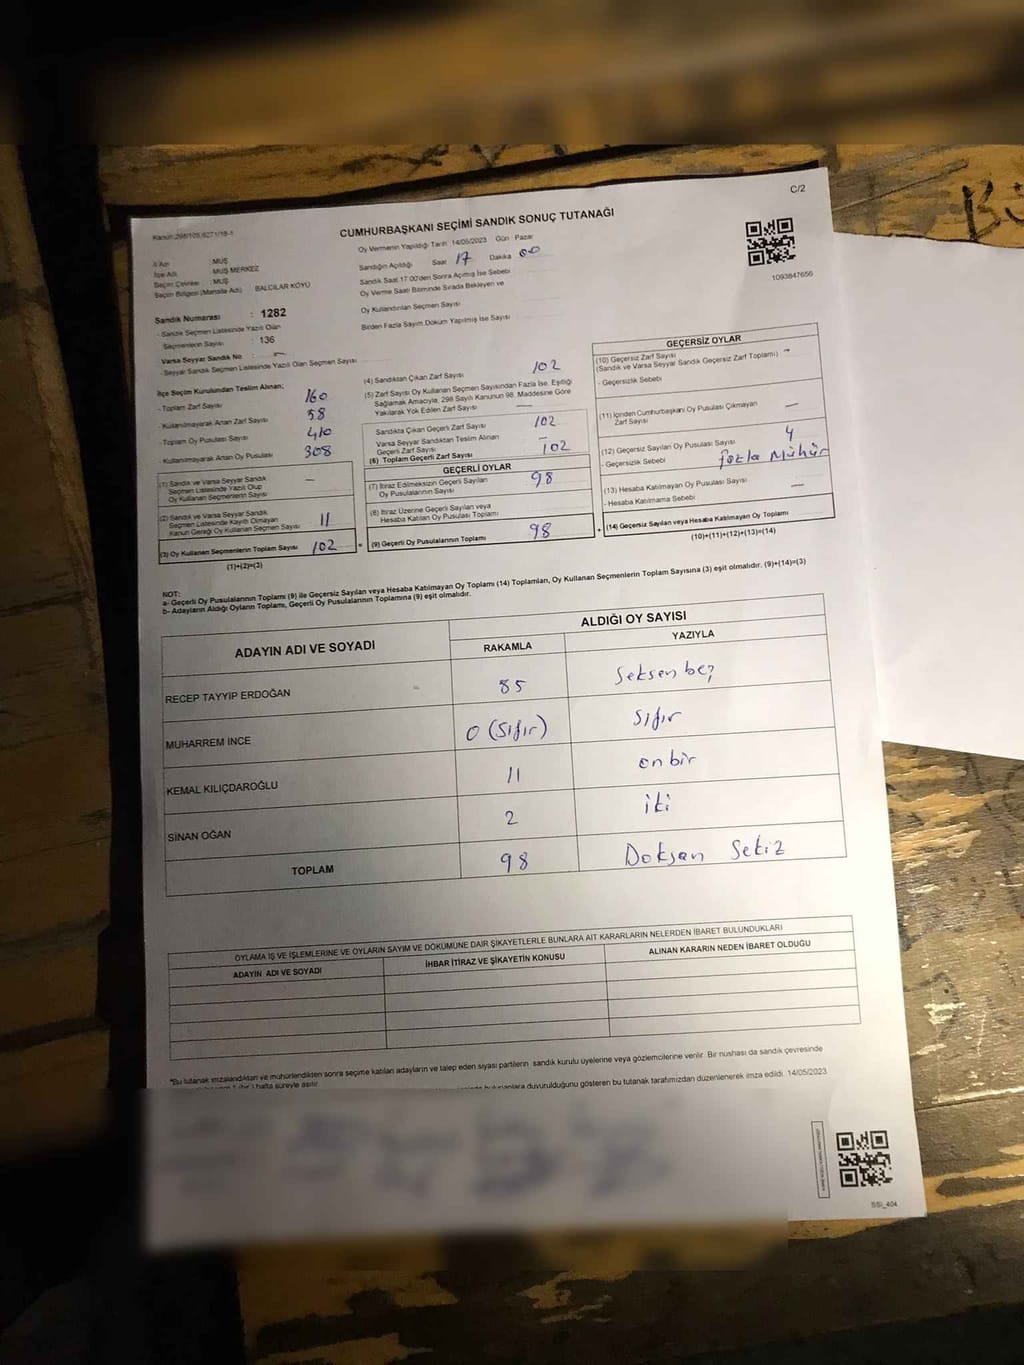 C/2
Kanun:298/105,6271/18-1
CUMHURBAŞKANI SEÇİMİ SANDIK SONUÇ TUTANAĞI
Oy Vermenin Yapıldığı Tarih 14/05/2023 Gün Pazar
Sandığın Açıldığı Saat 17 Dakika 00
Sandık Saat 17.00'den Sonra Açılmış İse Sebebi
Oy Verme Saati Bitiminde Sırada Bekleyen ve
Oy Kullandırılan Seçmen Sayısı
Birden Fazla Sayım Döküm Yapılmış İse Sayısı
1093847656
İl Adı : MUŞ
İlçe Adı : MUŞ MERKEZ
Seçim Çevresi : MUŞ
Seçim Bölgesi (Mahalle Adı) BALCILAR KÖYÜ
Sandık Numarası : 1282
- Sandık Seçmen Listesinde Yazılı Olan
Seçmenlerin Sayısı : 136
Varsa Seyyar Sandık No : -
- Seyyar Sandık Seçmen Listesinde Yazılı Olan Seçmen Sayısı
İlçe Seçim Kurulundan Teslim Alınan;
- Toplam Zarf Sayısı 160
- Kullanılmayarak Artan Zarf Sayısı 58
- Toplam Oy Pusulası Sayısı 410
- Kullanılmayarak Artan Oy Pusulası 308
(1) Sandık ve Varsa Seyyar Sandık
Seçmen Listesinde Yazılı Olup
Oy Kullanan Seçmenlerin Sayısı -
(2) Sandık ve Varsa Seyyar Sandık
Seçmen Listesinde Kayıtlı Olmayan
Kanun Gereği Oy Kullanan Seçmen Sayısı 11
(3) Oy Kullanan Seçmenlerin Toplam Sayısı 102
(1)+(2)=(3)
(4) Sandıktan Çıkan Zarf Sayısı 102
(5) Zarf Sayısı Oy Kullanan Seçmen Sayısından Fazla İse, Eşitliği
Sağlamak Amacıyla, 298 Sayılı Kanunun 98. Maddesine Göre
Yakılarak Yok Edilen Zarf Sayısı -
Sandıkta Çıkan Geçerli Zarf Sayısı 102
Varsa Seyyar Sandıktan Teslim Alınan
Geçerli Zarf Sayısı -
(6) Toplam Geçerli Zarf Sayısı 102
GEÇERLİ OYLAR
(7) İtiraz Edilmeksizin Geçerli Sayılan
Oy Pusulalarının Sayısı 98
(8) İtiraz Üzerine Geçerli Sayılan veya
Hesaba Katılan Oy Pusulası Toplamı
= (9) Geçerli Oy Pusulalarının Toplamı 98
GEÇERSİZ OYLAR
(10) Geçersiz Zarf Sayısı
(Sandık ve Varsa Seyyar Sandık Geçersiz Zarf Toplamı) -
- Geçersizlik Sebebi
(11) İçinden Cumhurbaşkanı Oy Pusulası Çıkmayan
Zarf Sayısı -
(12) Geçersiz Sayılan Oy Pusulası Sayısı 4
- Geçersizlik Sebebi fazla Mühür
(13) Hesaba Katılmayan Oy Pusulası Sayısı -
- Hesaba Katılmama Sebebi
+ (14) Geçersiz Sayılan veya Hesaba Katılmayan Oy Toplamı
(10)+(11)+(12)+(13)=(14)
NOT:
a- Geçerli Oy Pusulalarının Toplamı (9) ile Geçersiz Sayılan veya Hesaba Katılmayan Oy Toplamı (14) Toplamları, Oy Kullanan Seçmenlerin Toplam Sayısına (3) eşit olmalıdır. (9)+(14)=(3)
b- Adayların Aldığı Oyların Toplamı, Geçerli Oy Pusulalarının Toplamına (9) eşit olmalıdır.
ADAYIN ADI VE SOYADI
ALDIĞI OY SAYISI
RAKAMLA YAZIYLA
RECEP TAYYİP ERDOĞAN 85 Seksen beş
MUHARREM İNCE 0 (Sıfır) Sıfır
KEMAL KILIÇDAROĞLU 11 on bir
SİNAN OĞAN 2 iki
TOPLAM 98 Doksan Sekiz
OYLAMA İŞ VE İŞLEMLERİNE VE OYLARIN SAYIM VE DÖKÜMÜNE DAİR ŞİKAYETLERLE BUNLARA AİT KARARLARIN NELERDEN İBARET BULUNDUKLARI
ADAYIN ADI VE SOYADI İHBAR İTİRAZ VE ŞİKAYETİN KONUSU ALINAN KARARIN NEDEN İBARET OLDUĞU
*Bu tutanak imzalandıktan ve mühürlendikten sonra seçime katılan adayların ve talep eden siyasi partilerin sandık kurulu üyelerine veya gözlemcilerine verilir. Bir nüshası da sandık çevresinde
hafta süreyle asılır. duyurulduğunu gösteren bu tutanak tarafımızdan düzenlenerek imza edildi. 14/05/2023